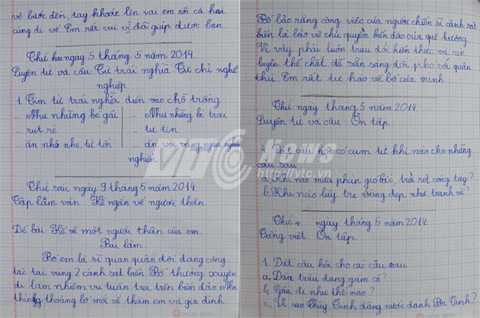 về bước đến, tay khoác lên vai em rồi cả hai
cùng đi về. Em rất vui vì đã giúp được bạn.
Thứ hai ngày 5 tháng 5 năm 2014
Luyện từ và câu Từ trái nghĩa Từ chỉ nghề
nghiệp
1. Tìm từ trái nghĩa điền vào chỗ trống.
Như những bé gái
Như những bé trai
rụt rè
tự tin
ăn nhỏ nhẹ, từ tốn
nghiến
Thứ sáu ngày 9 tháng 5 năm 2014
Tập làm văn Kể ngắn về người thân.
Đề bài Kể về một người thân của em.
Bài làm
Bố em là sĩ quan quân đội đang công
tác tại vùng 2 cảnh sát biển. Bố thường xuyên
đi làm nhiệm vụ tuần tra trên biển đảo nên
thỉnh thoảng bố mới về thăm em và gia đình.
Bố bảo rằng công việc của người chiến sĩ cảnh sát
biển là bảo vệ chủ quyền biển đảo của quê hương.
Vì vậy phải luôn trau dồi kiến thức và rèn
luyện thể chất để sẵn sàng đối phó với quân
thù. Em rất tự hào về bố của mình.
Thứ ngày tháng 5 năm 2014
Luyện từ và câu Ôn tập
cụm từ khi nào cho những
câu sau
a. Khi nào mưa phùn gió bấc, trời rét cóng tay?
b. Khi nào lũy tre trông đẹp như tranh vẽ?
Thứ 4 ngày tháng 5 năm 2014
Tiếng việt Ôn tập
1. Đặt câu hỏi cho các câu sau
a. Đàn trâu đang gặm cỏ?
b. như thế nào?
c. Vì sao Thủy Tinh dâng nước đánh Sơn Tinh?
VTC News
http://vtc.vn